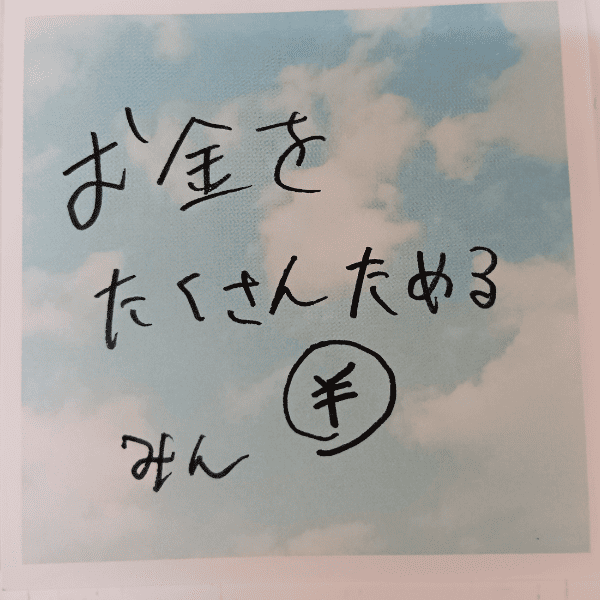 お金を
たくさんためる
¥
みん